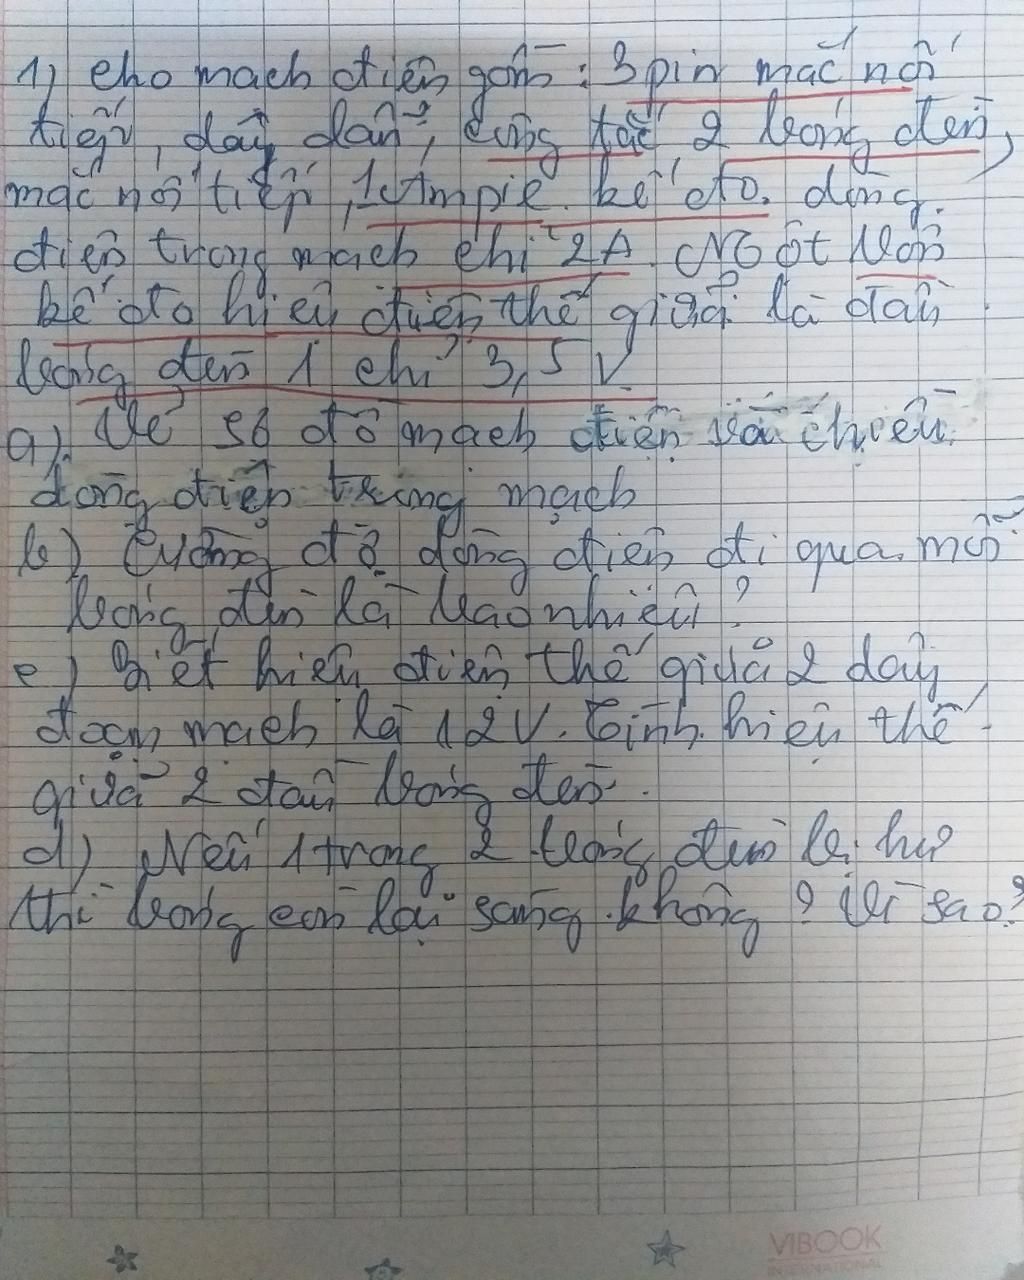 1) cho mạch điện gồm : 3 pin mắc nối
tiếp, dây dẫn, công tắc 2 bóng đèn,
mắc nối tiếp, 1 Ampie kế đo dòng
điện trong mạch chỉ 2A. Một Vôn
kế đo hiệu điện thế giữa là đầu
bóng đèn 1 chỉ 3,5 V
a) Vẽ sơ đồ mạch điện và chiều
dòng điện trong mạch
b) Cường độ dòng điện đi qua mỗi
bóng đèn là bao nhiêu ?
c) Biết hiệu điện thế giữa 2 dây
đoạn mạch là 12V. Tính hiệu thế
giữa 2 đầu bóng đèn.
d) Nếu 1 trong 2 bóng đèn bị hư
thì bóng còn lại sáng không ? Vì sao?
VIBOOK
INTERNATIONAL